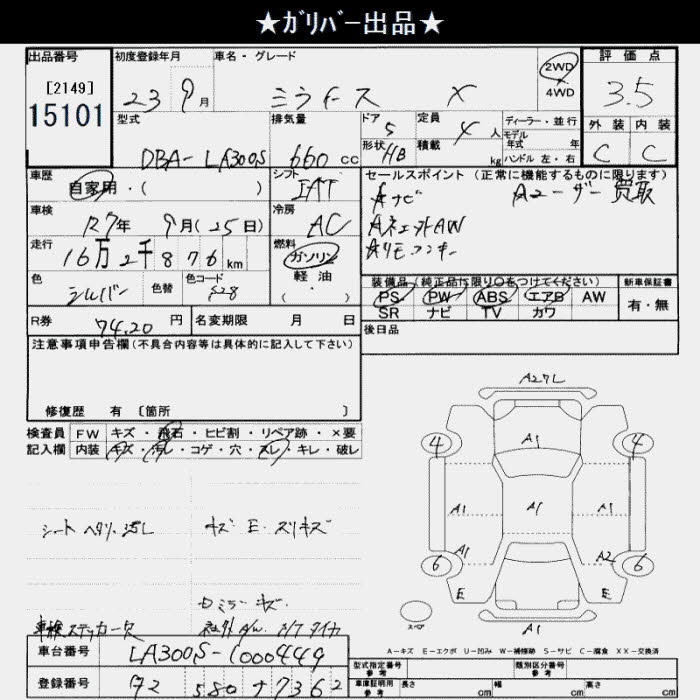 ★ｶﾞﾘﾊﾞｰ出品★
出品番号 初度登録年月 車名・グレード 2WD 4WD 評価点
[2149] 23 9月 ミラ X 3.5
15101 型式 排気量 ドア 5 定員 4 人 ディーラー・並行 外装 内装
DBA- LA300S 660 cc 形状 HB 積載 kg モデル年式 年 ハンドル 左・右 C C
車歴 シフト セールスポイント (正常に機能するものに限ります)
自家用・( ) IAT Aナビ Aユーザー買取
車検 冷房 A社外AW
R7年 9月(25日) AC Aリモコンキー
走行 燃料
16万2千876km ガソリン 軽油・( )
色 シルバー 色替 色コード S28 装備品(純正品に限り○をつけてください) 新車保証書
PS PW ABS エアB AW 有・無
SR ナビ TV カワ
R券 円 名変期限 月 日 後日品
注意事項申告欄(不具合内容等は具体的に記入して下さい)
修復歴 有 [箇所 ]
検査員 FW キズ・飛石・ヒビ割・リペア跡・×要
記入欄 内装 キズ・汚レ・コゲ・穴・スレ・キレ・破レ
A1
4 4
A1 A1 A1
A1 A2
6 6
E E
A1
スペア
シート ヘタリ・汚レ キズ E・スリキズ
ミラーキズ
車検ステッカー欠
A-キズ E-エクボ U-凹み W-補修跡 S-サビ C-腐食 XX-交換済
車台番号 LA300S-1000449
登録番号 580 7362
型式指定番号 参考 類別区分番号 参考
車庫証明用 参考 長さ cm 幅 cm 高さ cm